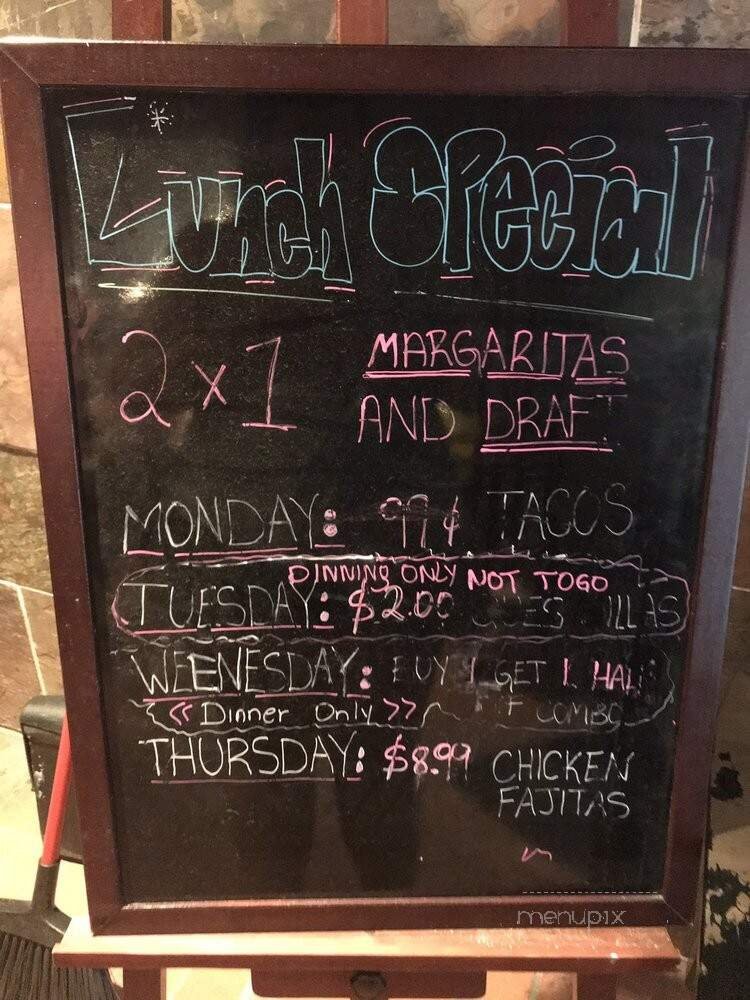 Lunch Special
2 x 1 MARGARITAS
AND DRAFT
MONDAY: 99¢ TACOS
DINNING ONLY NOT TOGO
TUESDAY: $2.00
WEENESDAY: BUY 1 GET 1 HALF
<< Dinner Only >> COMBO
THURSDAY: $8.99 CHICKEN
FAJITAS
menupix